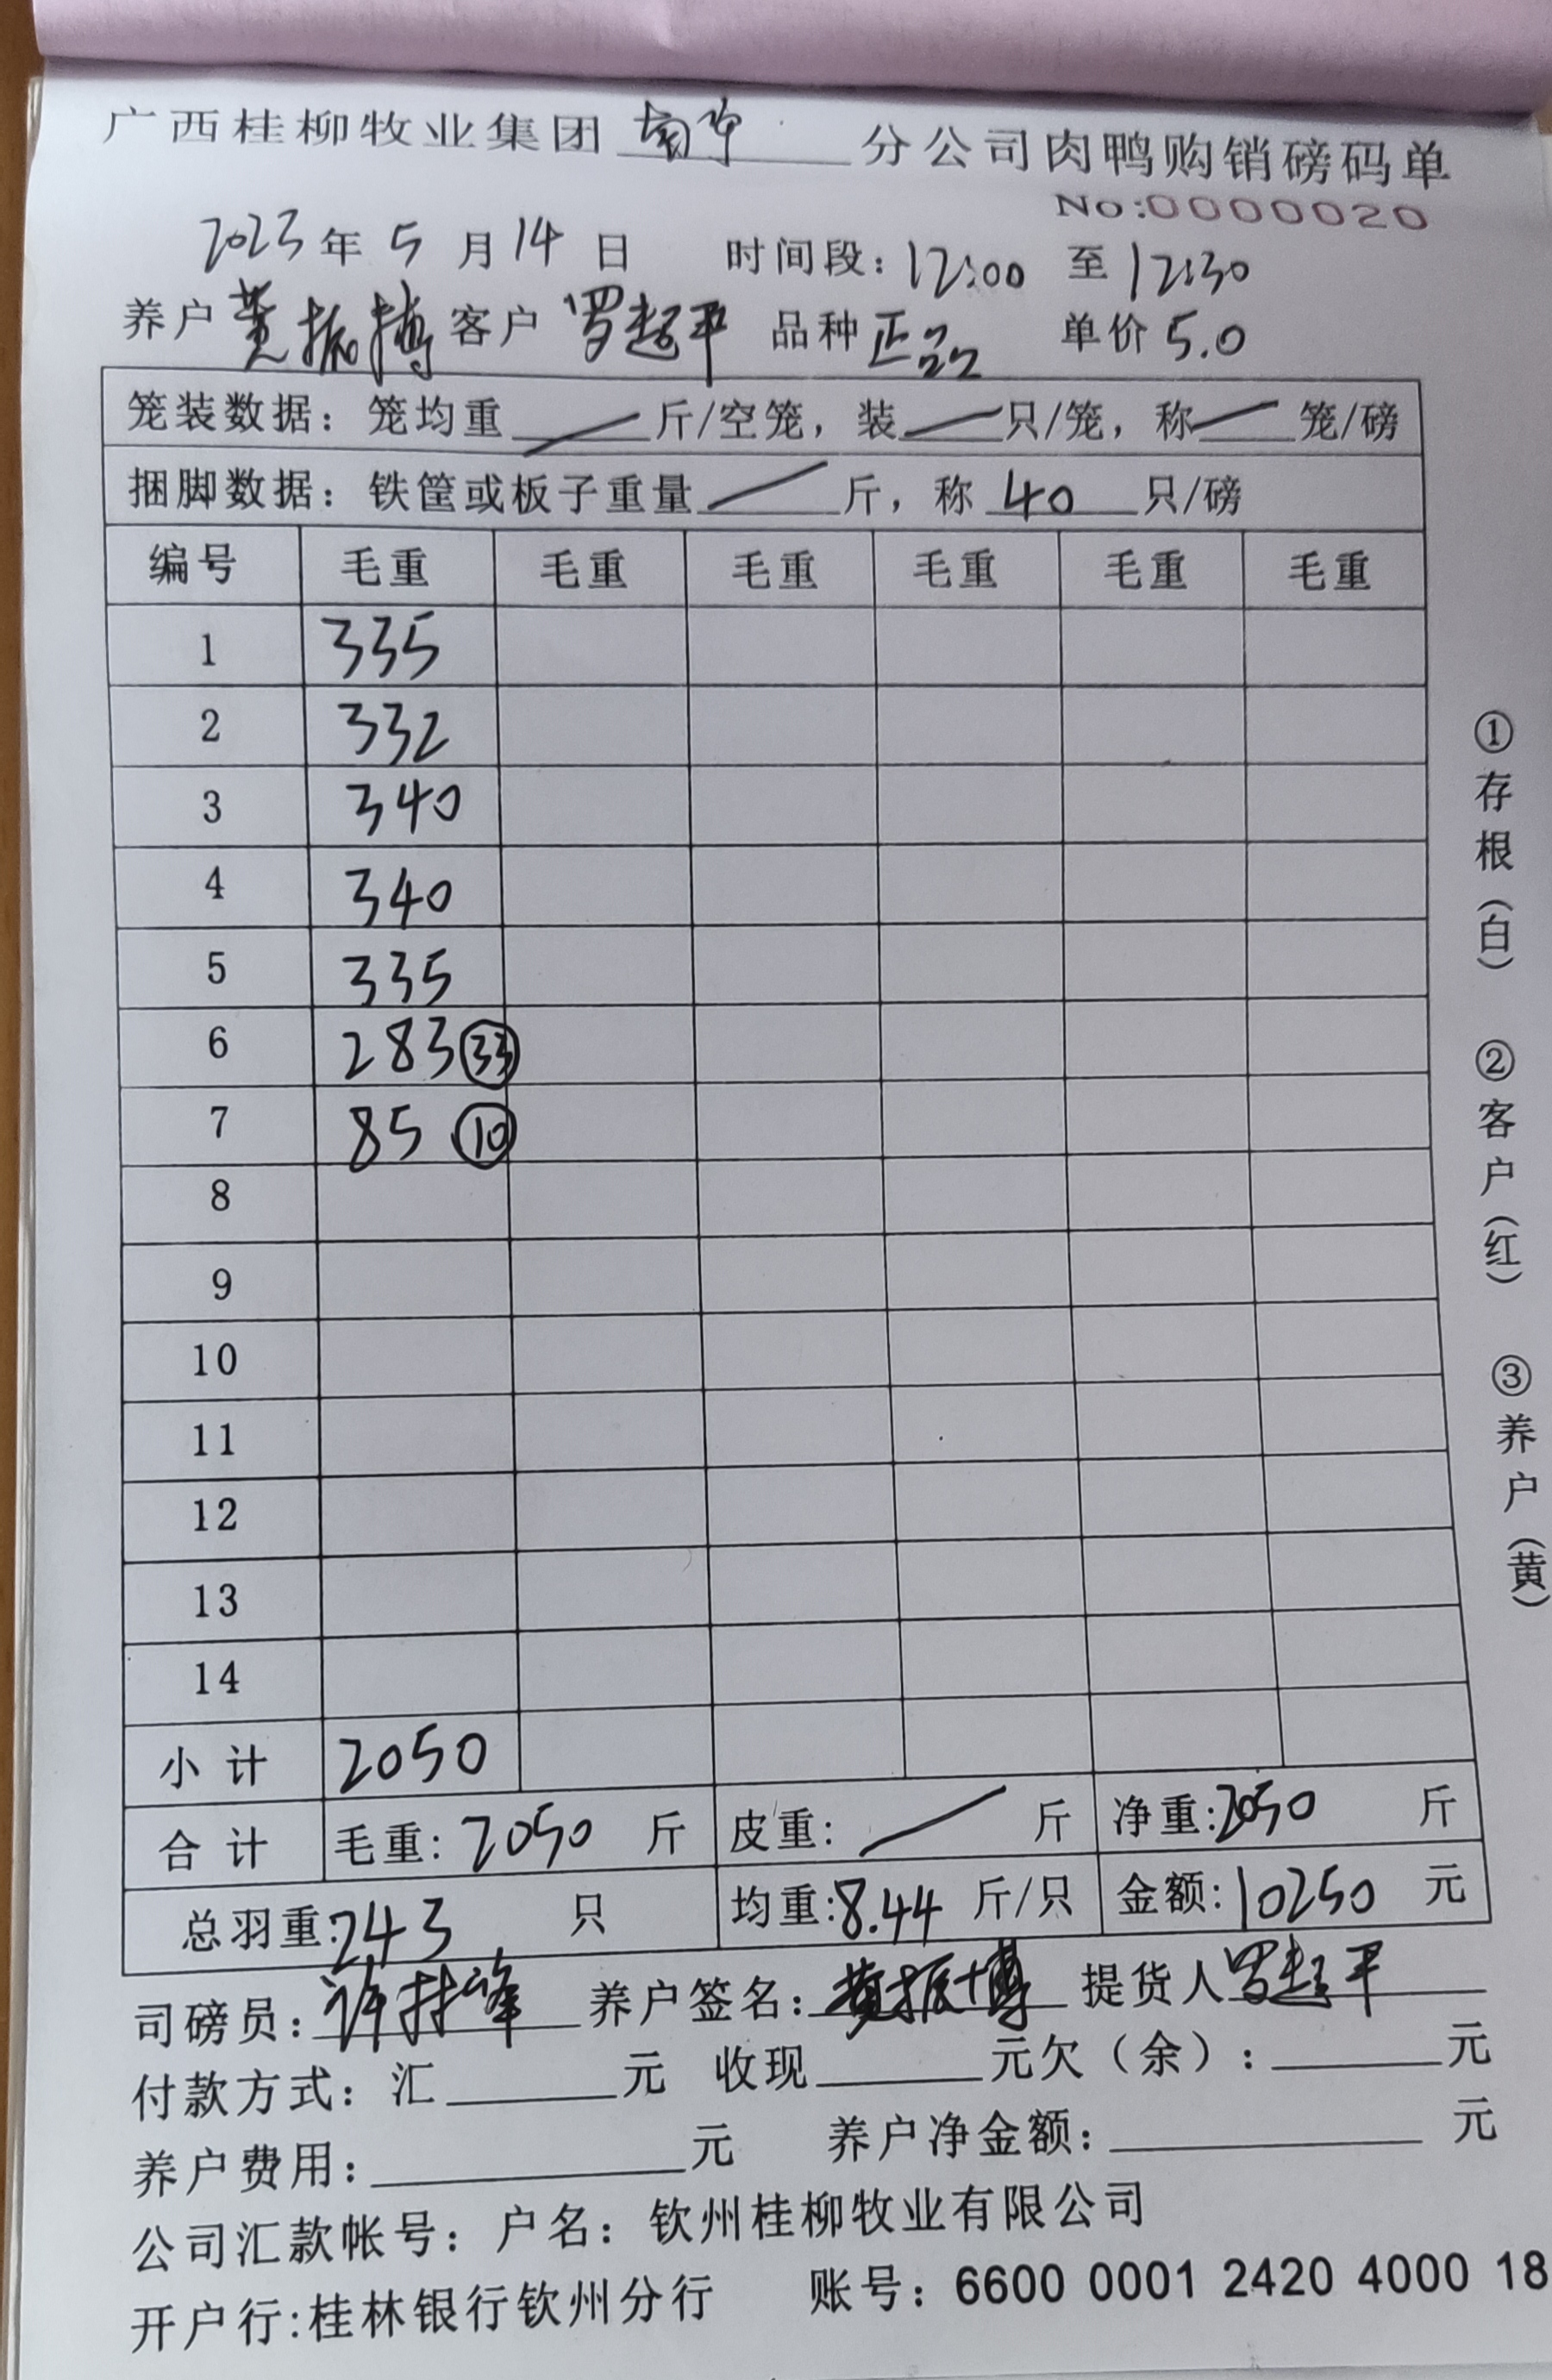 广西桂柳牧业集团 南宁 分公司肉鸭购销磅码单
No:0000020
2023年5月14日 时间段:12:00 至 12:30
养户 黄振博 客户 罗超平 品种 正品 单价 5.0
笼装数据: 笼均重 斤/空笼, 装 只/笼, 称 笼/磅
捆脚数据: 铁筐或板子重量 斤, 称 40 只/磅
编号 毛重 毛重 毛重 毛重 毛重 毛重
1 335
2 332
3 340
4 340
5 335
6 283 33
7 85 10
8
9
10
11
12
13
14
小计 2050
合计 毛重: 2050 斤 皮重: 斤 净重: 2050 斤
总羽重: 243 只 均重: 8.44 斤/只 金额: 10250 元
司磅员: 养户签名: 黄振博 提货人 罗超平
付款方式: 汇 元 收现 元欠(余): 元
养户费用: 元 养户净金额: 元
公司汇款帐号: 户名: 钦州桂柳牧业有限公司
开户行:桂林银行钦州分行 账号: 6600 0001 2420 4000 18
①存根(白) ②客户(红) ③养户(黄)